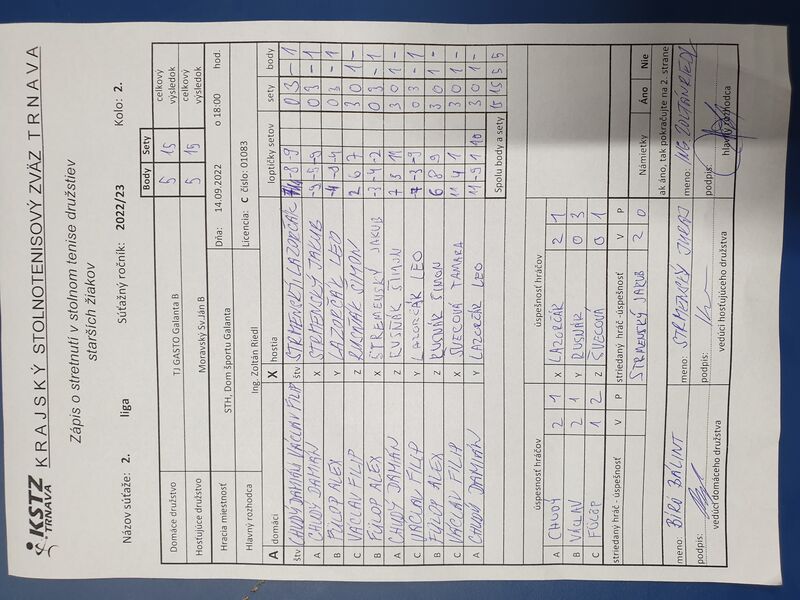 KSTZ
TRNAVA
KRAJSKÝ STOLNOTENISOVÝ ZVÄZ TRNAVA
Zápis o stretnutí v stolnom tenise družstiev
starších žiakov
Názov súťaže: 2. liga Súťažný ročník: 2022/23 Kolo: 2.
Body Sety
Domáce družstvo TJ GASTO Galanta B 5 15 celkový výsledok
Hostujúce družstvo Moravský Sv.Ján B 5 15 celkový výsledok
Hracia miestnosť STH, Dom športu Galanta Dňa: 14.09.2022 o 18:00 hod.
Hlavný rozhodca Ing. Zoltán Riedl Licencia: C číslo: 01083
A domáci X hostia loptičky setov sety body
štv CHUDÝ DAMIÁN VÁCLAV FILIP štv STRMENSKÝ LAZORČÁK -8 -9 0 3 - 1
A CHUDÝ DAMIÁN X STRMENSKÝ JAKUB 0 3 - 1
B FÜLOP ALEX Y LAZORČÁK LEO 0 3 - 1
C VÁCLAV FILIP Z RUSNÁK ŠIMON 2 6 7 3 0 1 -
B FÜLOP ALEX X STREMENSKÝ JAKUB -3 -4 -2 0 3 - 1
A CHUDÝ DAMIÁN Z RUSŇÁK ŠIMON 7 8 11 3 0 1 -
C VÁCLAV FILIP Y LAZORČÁK LEO -7 -3 -9 0 3 - 1
B FÜLOP ALEX Z RUSNÁK ŠIMON 6 8 9 3 0 1 -
C VÁCLAV FILIP X ŠVECOVÁ TAMARA 11 4 1 3 0 1 -
A CHUDÝ DAMIÁN Y LAZORČÁK LEO 11 -9 1 10 3 0 1 -
Spolu body a sety 15 15 5 5
úspesnosť hráčov úspešnosť hráčov
A CHUDÝ 2 1 X LAZORČÁK 2 1
B VÁCLAV 2 1 Y RUSNÁK 0 3
C FÜLÖP 1 2 Z ŠVECOVÁ 0 1
striedaný hráč -úspešnosť V P striedaný hráč -úspešnosť V P
STRMENSKÝ JAKUB 2 0
Námietky Áno Nie
ak áno, tak pokračujte na 2. strane
meno: BÍRÓ BÁLINT meno: STRMENSKÝ JURAJ meno: ING. ZOLTÁN RIEDL
podpis: podpis: podpis:
vedúci domáceho družstva vedúci hosťujúceho družstva hlavný rozhodca